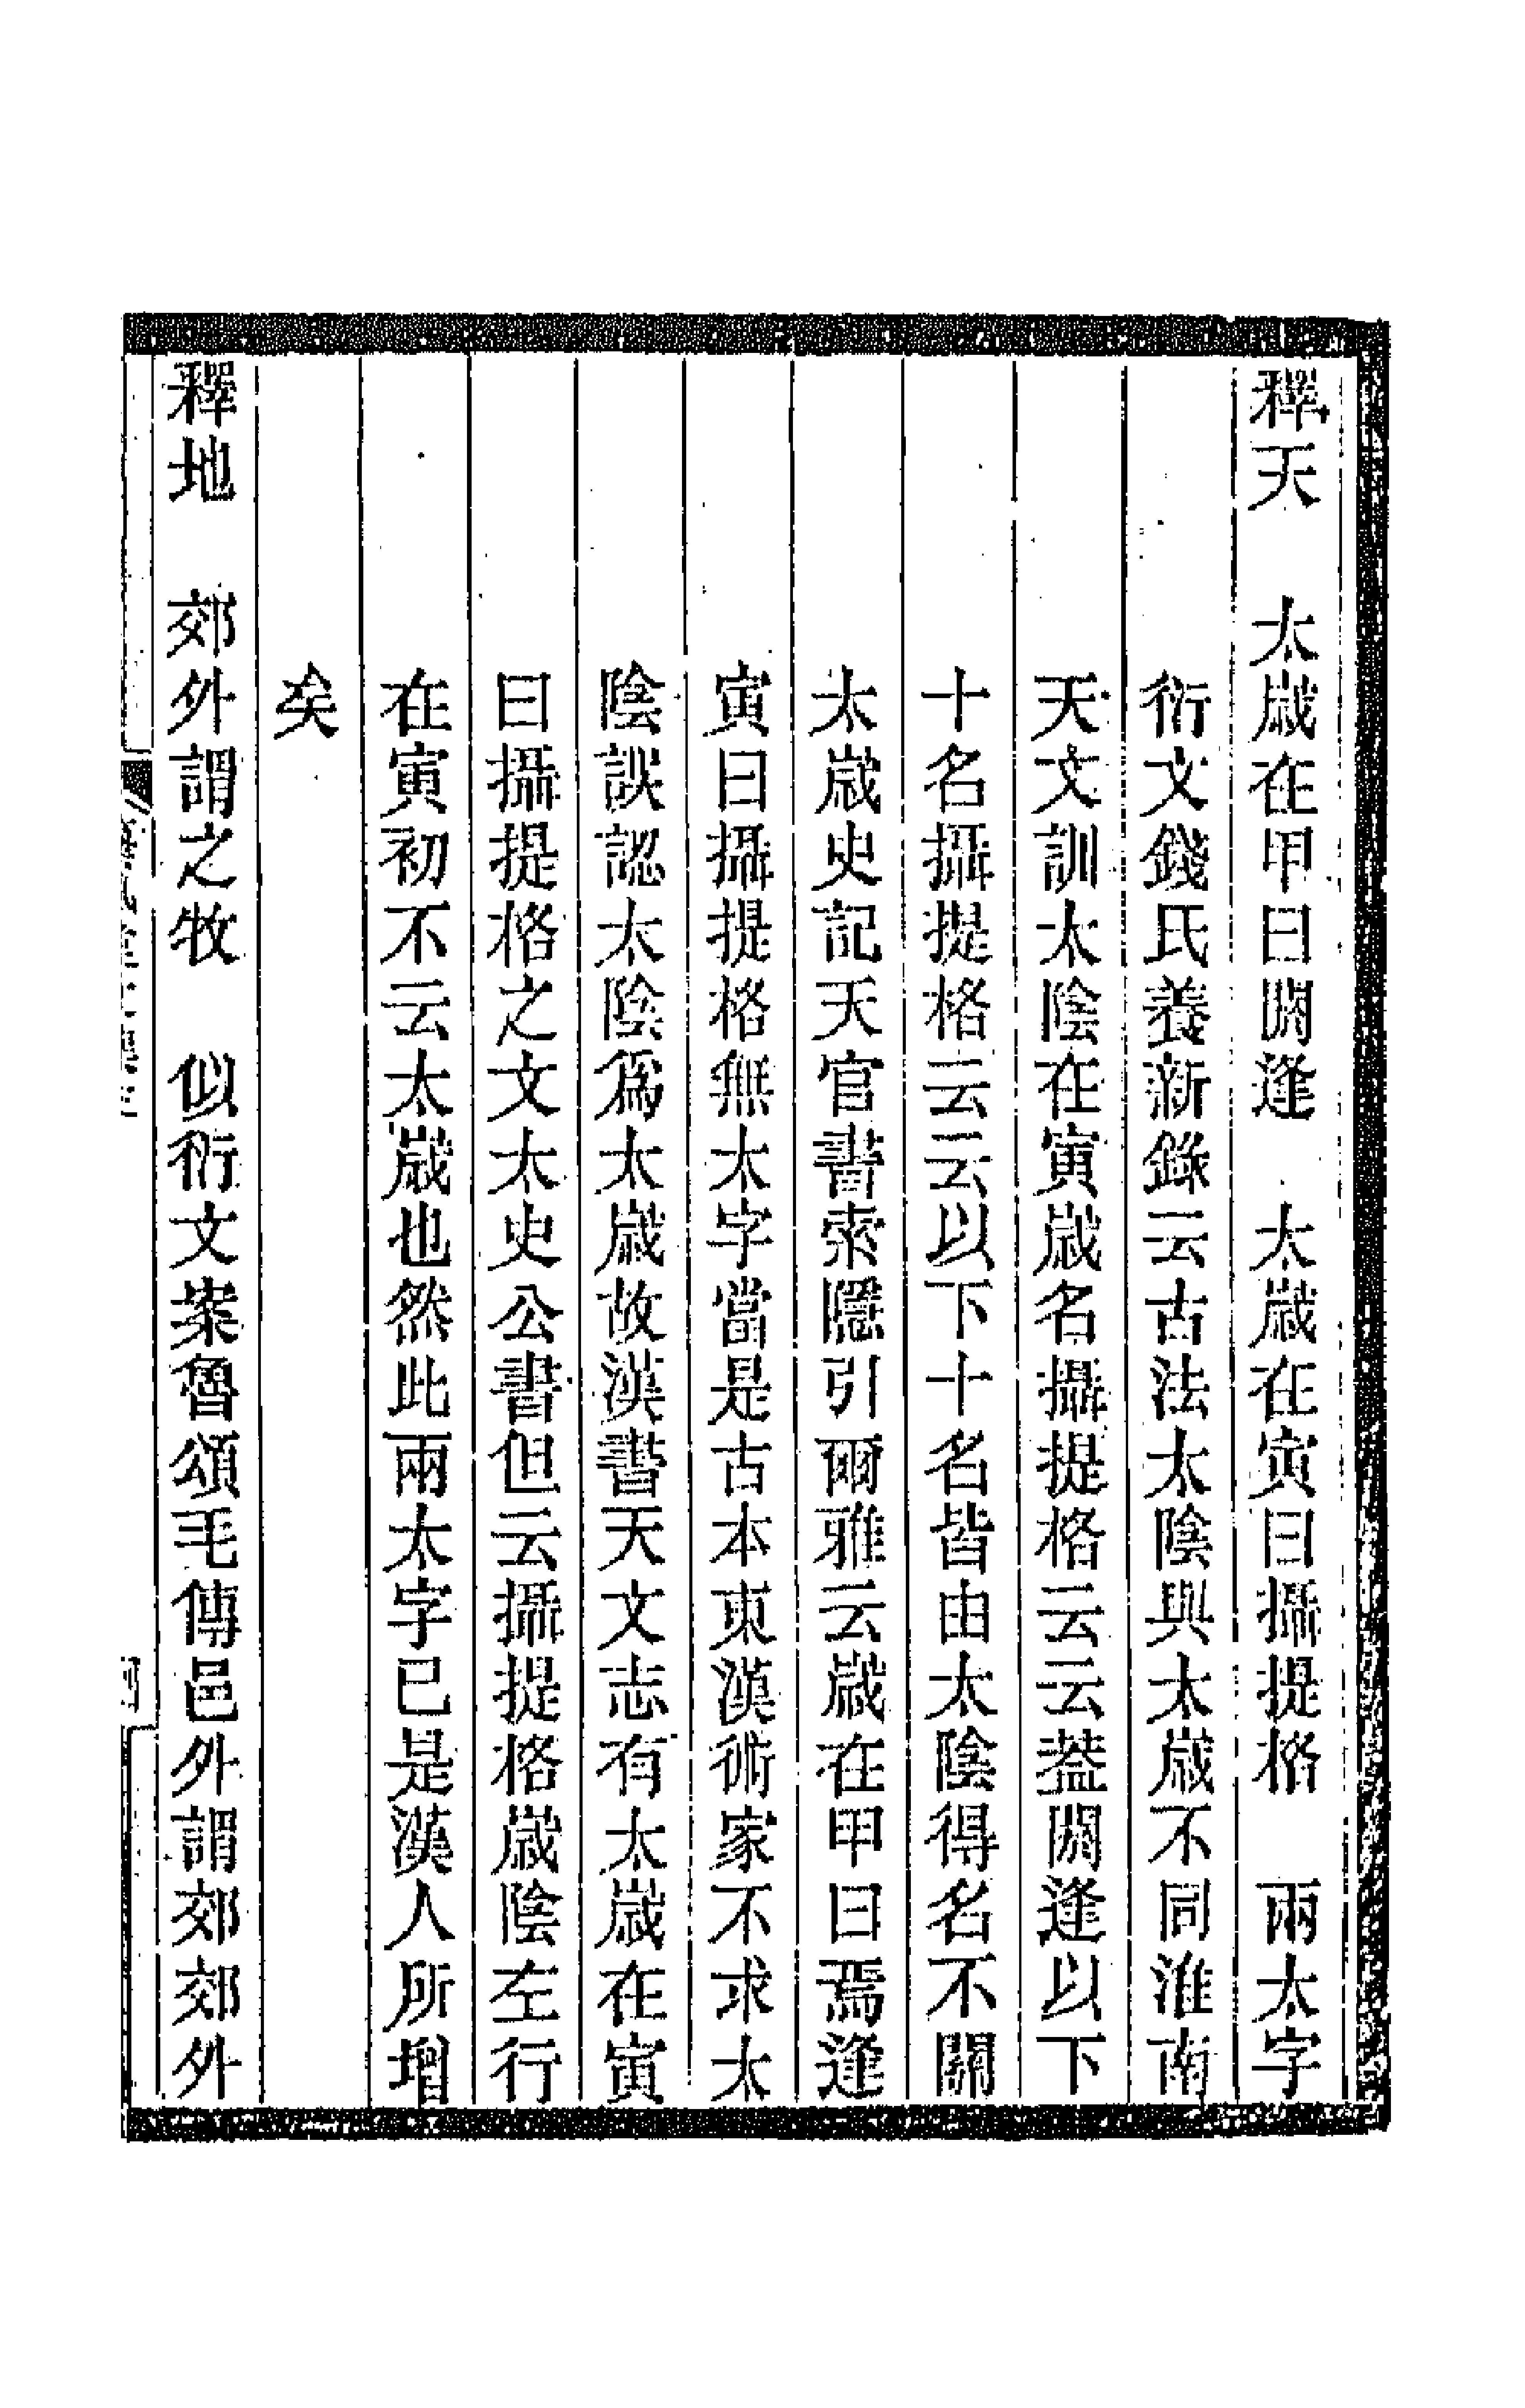 釋天　太歲在甲曰閼逢　太歲在寅曰攝提格　兩太字
衍文錢氏養新錄云古法太陰與太歲不同淮南
天文訓太陰在寅歲名攝提格云云葢閼逢以下
十名攝提格云云以下十名皆由太陰得名不關
太歲史記天官書索隱引爾雅云歲在甲曰焉逢
寅曰攝提格無太字當是古本東漢術家不求太
陰誤認太陰爲太歲故漢書天文志有太歲在寅
曰攝提格之文太史公書但云攝提格歲陰左行
在寅初不云太歲也然此兩太字已是漢人所增
矣
釋地　郊外謂之牧　似衍文案魯頌毛傳邑外謂郊郊外